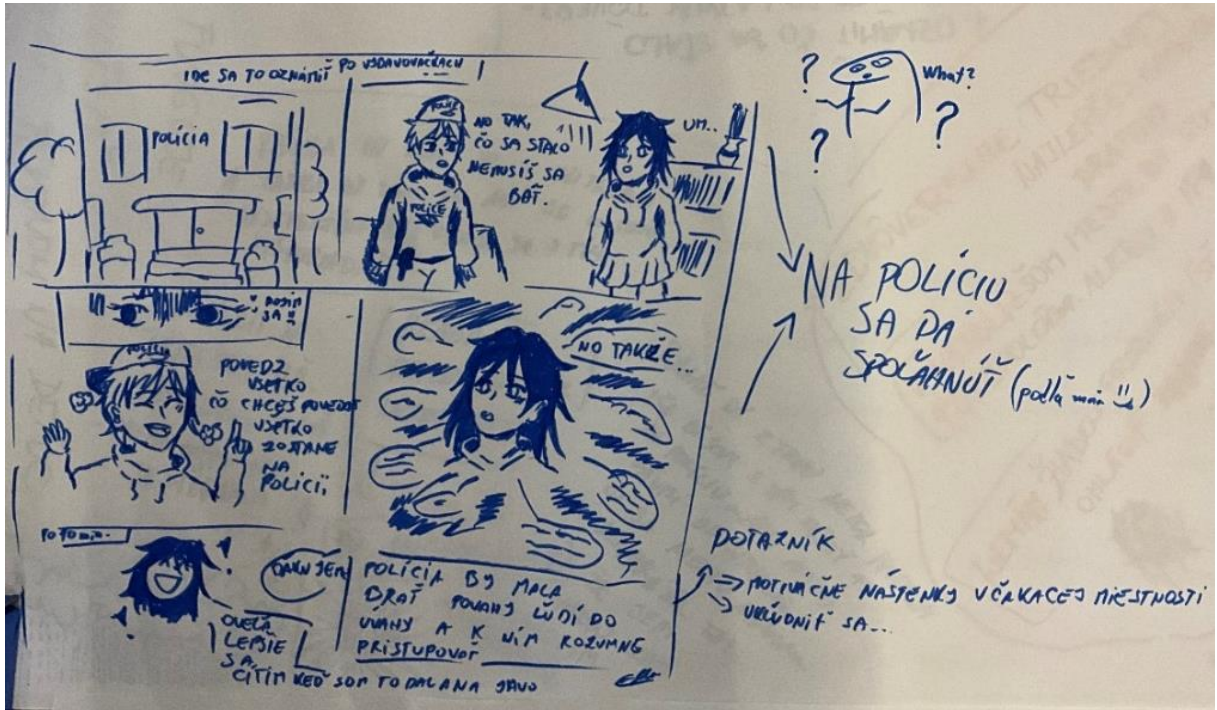 IDE SA TO OZNÁMIŤ
PO VYDAVOVAČKÁCH
POLÍCIA
POLICE
NO TAK,
ČO SA STALO
NEMUSÍŠ SA
BÁŤ.
POLICE
UM..
BOJÍM
SA
POLÍCIA
POVEDZ
VŠETKO
ČO CHCEŠ POVEDAŤ
VŠETKO
ZOSTANE
NA
POLÍCII
NO TAKŽE...
ĎAKUJEM
OVEĽA
LEPŠIE
SA
CÍTIM KEĎ SOM TO DALA NA JAVO
POLÍCIA BY MALA
BRAŤ POVAHY ĽUDÍ DO
ÚVAHY A K NIM ROZUMNE
PRISTUPOVAŤ
? What?
? ?
NA POLÍCIU
SA DÁ
SPOĽAHNÚŤ (podľa mňa :))
DOTAZNÍK
⇒ MOTIVAČNÉ NÁSTENKY V ČAKACEJ MIESTNOSTI
UKĽUDNIŤ SA...